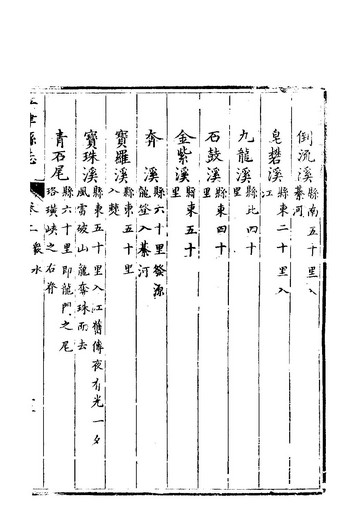 倒流溪縣南五十里入綦河
皂礬溪縣東二十里入江
九龍溪縣北四十里
石鼓溪縣東四十里
金紫溪縣東五十里
奔溪縣六十里發源龍登入綦河
寶羅溪縣東五十里入雙
寶珠溪縣東五十里入江舊傳夜有光一夕風雷破山龍奪珠而去
青石尾縣六十里即龍門之尾珞璜峽之右脊
津縣志 卷二 眾水